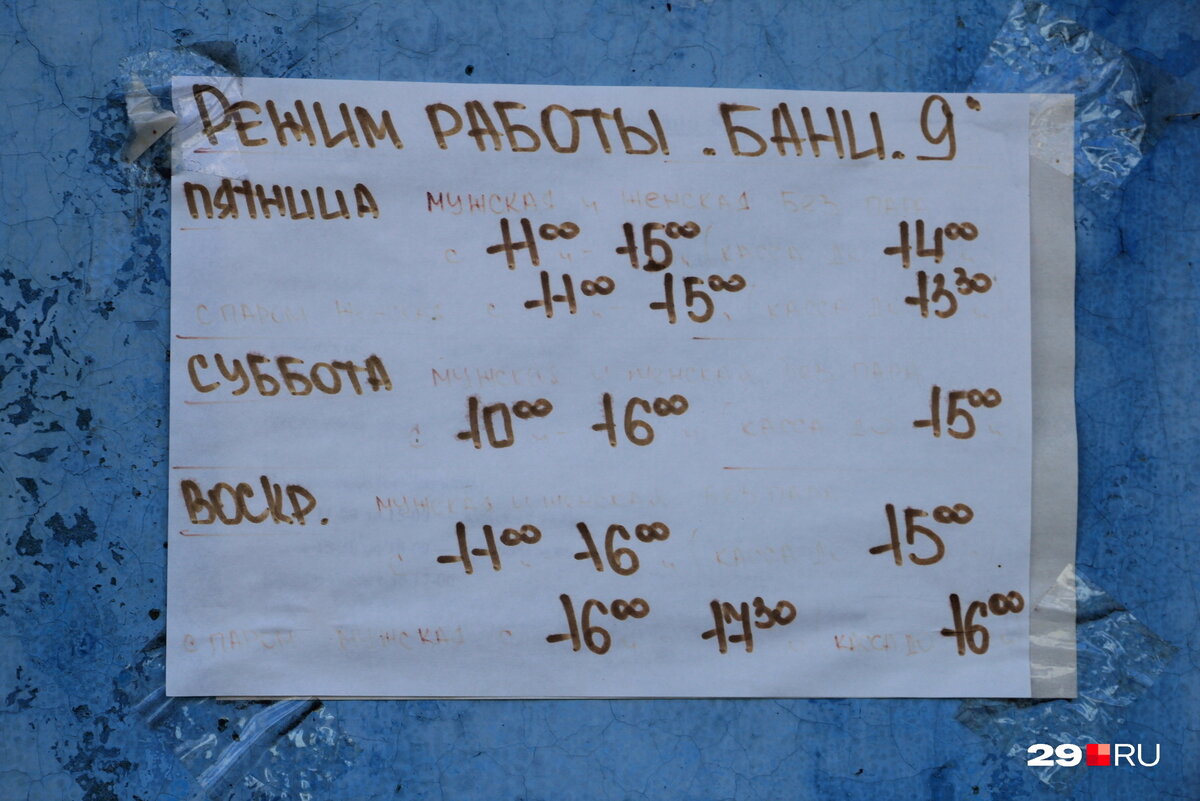 РЕЖИМ РАБОТЫ "БАНИ. 9"
ПЯТНИЦА МУЖСКАЯ и ЖЕНСКАЯ БЕЗ ПАРА
с 11⁰⁰ 15⁰⁰ (КАССА До 14⁰⁰
С ПАРОМ ЖЕНСКАЯ с 11⁰⁰ 15⁰⁰ КАССА До 13³⁰
СУББОТА МУЖСКАЯ и ЖЕНСКАЯ БЕЗ ПАРА
с 10⁰⁰ 16⁰⁰ КАССА До 15⁰⁰
ВОСКР. МУЖСКАЯ и ЖЕНСКАЯ
11⁰⁰ 16⁰⁰ (КАССА До 15⁰⁰
С ПАРОМ МУЖСКАЯ с 16⁰⁰ 17³⁰ КАССА До 16⁰⁰
29.RU